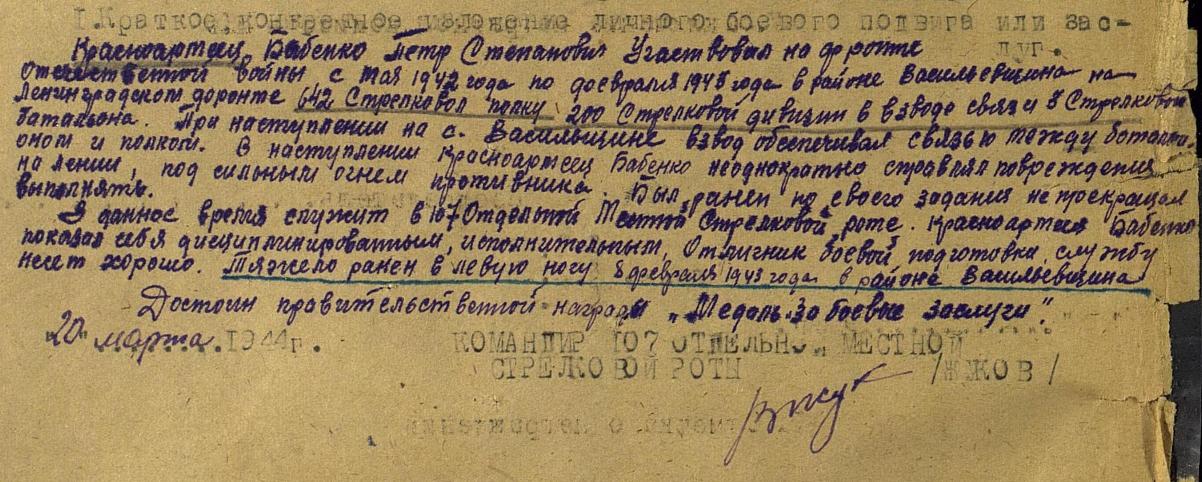 I.Краткое, конкретное изложение личного боевого подвига или зас-
луг.
Красноармеец Бабенко Петр Степанович Участвовал на фронте
Отечественной войны с Мая 1942 года по февраля 1943 года в районе Васильевщина на
Ленинградском фронте 642 Стрелковом полку 200 Стрелковой дивизии в взводе связи 3 Стрелковом
батальона. При наступлении на с. Васильщине взвод обеспечивал связью между баталь
оном и полком. В наступлении Красноармеец Бабенко неоднократно справлял повреждения
на лении, под сильным огнем противника. Был ранен но своего задания не прекращал
выполнять.
В данное время служит в 107 Отдельной Местной Стрелковой роте. Красноармеец Бабенко
показал себя дисциплинированным, исполнительным, Отличник боевой подготовки, службу
несет хорошо. Тяжело ранен в левую ногу 8 февраля 1943 года в районе Васильевщина
Достоин правительственной награды „Медаль за боевые заслуги".
20 марта 1944г.
КОМАНДИР 107 ОТДЕЛЬНОЙ МЕСТНОЙ
СТРЕЛКОВОЙ РОТЫ /ЖУКОВ/